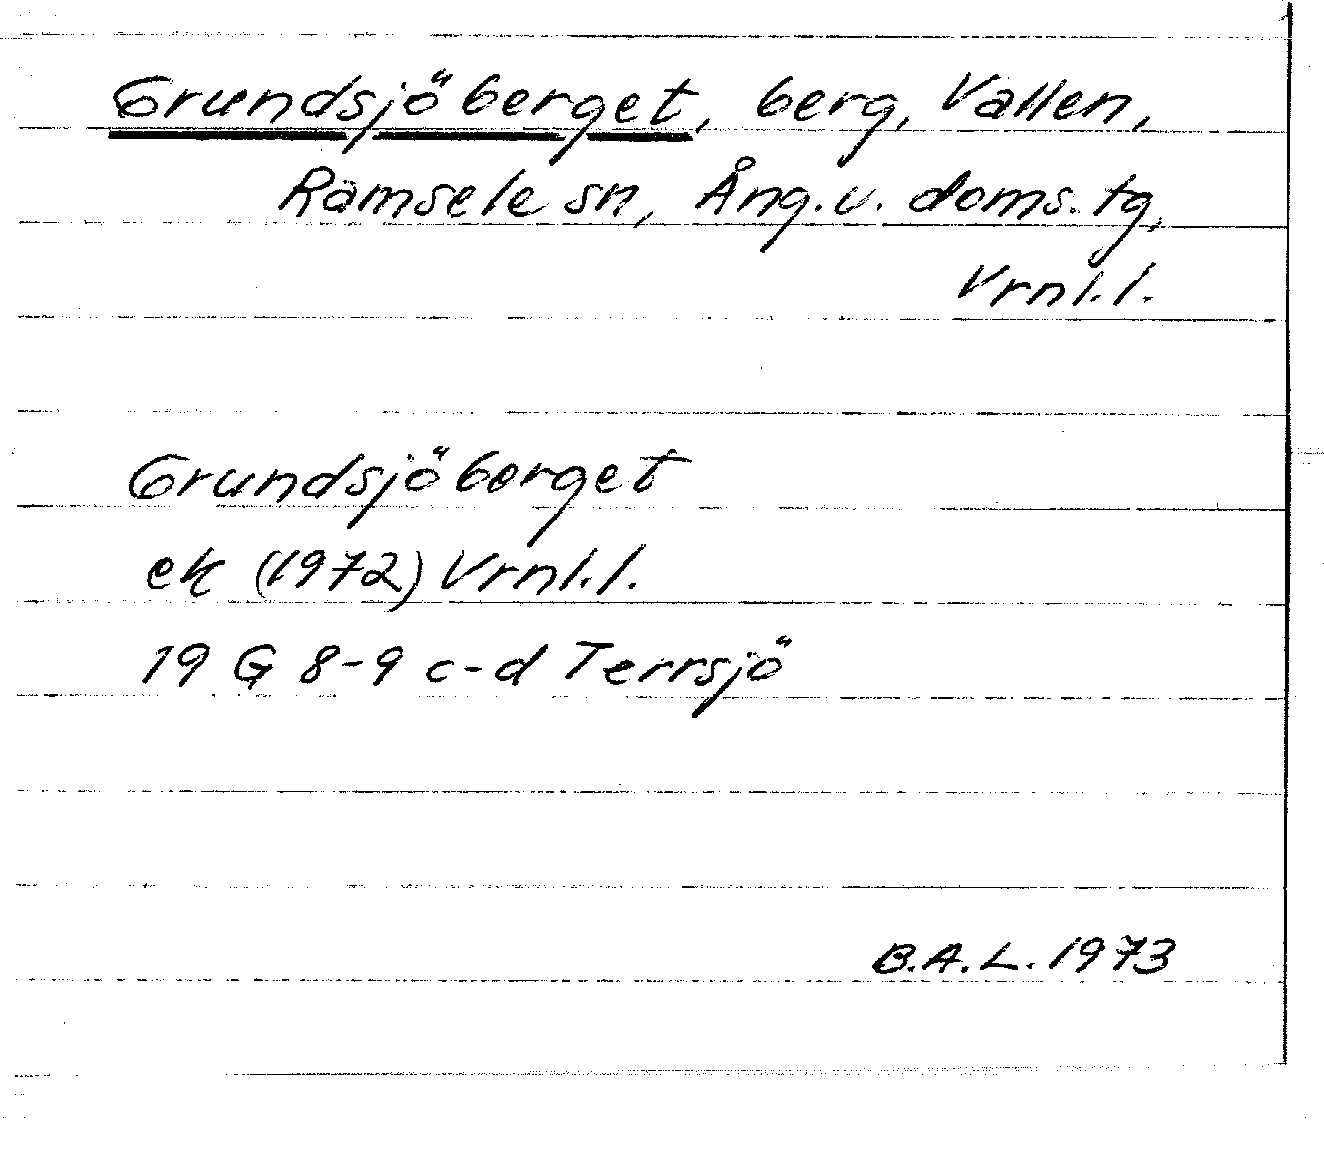 Grundsjöberget, berg, Vallen,
Ramsele sn, Ång.v. doms. tg,
Vrnl.l.
Grundsjöberget
ek (1972) Vrnl.l.
19 G 8-9 c-d Terrsjö
B.A.L. 1973